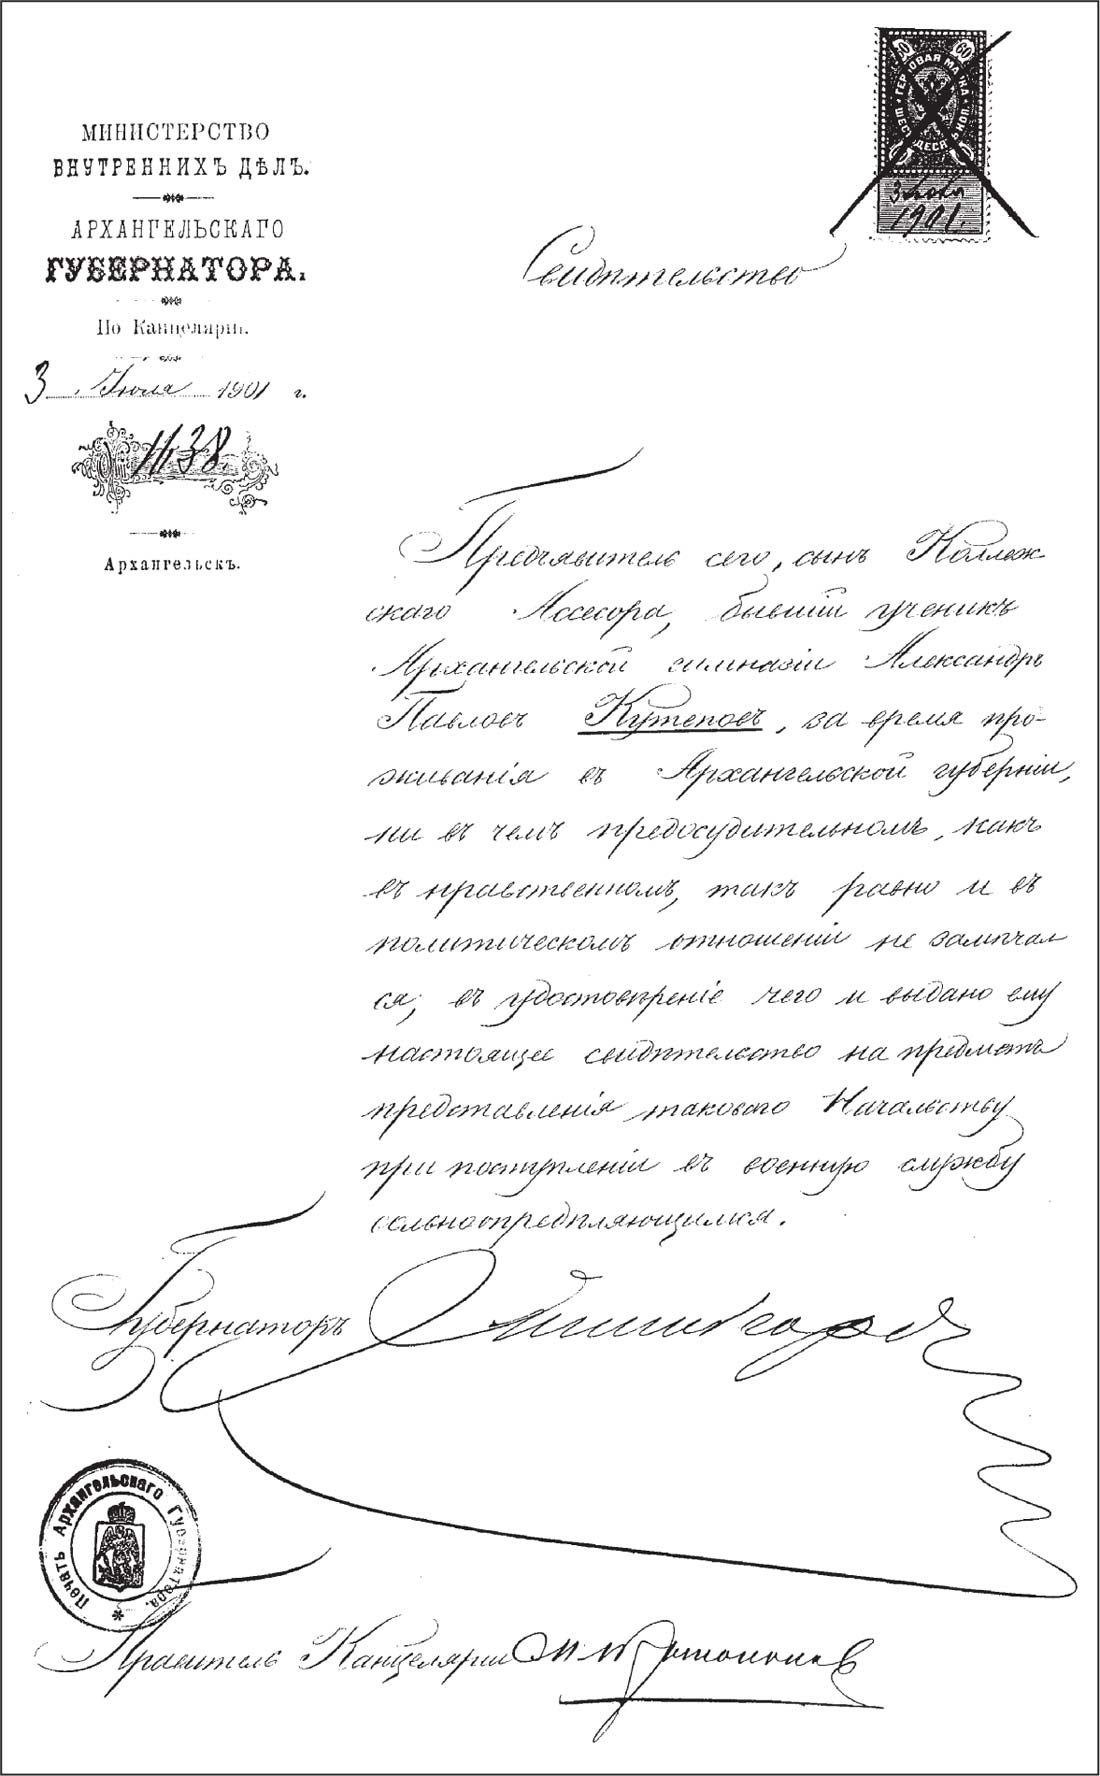 МИНИСТЕРСТВО
ВНУТРЕННИХЪ ДѢЛЪ.
АРХАНГЕЛЬСКАГО
ГУБЕРНАТОРА.
По Канцеляріи.
3 Іюля 1901 г.
1138.
Архангельскъ.
60 60
ГЕРБОВАЯ МАРКА
ШЕСТЬДЕСЯТЪ КОП.
3 Іюля
1901.
Свидѣтельство
Предъявитель сего, сынъ Коллеж
скаго Ассесора, бывшій ученикъ
Архангельской гимназіи Александръ
Павловъ Кутеповъ, за время про-
живанія въ Архангельской губерніи,
ни въ чемъ предосудительномъ, какъ
въ нравственномъ, такъ равно и въ
политическомъ отношеніи не замѣчал
ся; въ удостовѣреніе чего и выдано ему
настоящее свидѣтельство на предметъ
представленія таковаго Начальству
при поступленіи въ военную службу
вольноопредѣляющимся.
Губернаторъ
Печать Архангельскаго Губернатора.
Правитель Канцеляріи